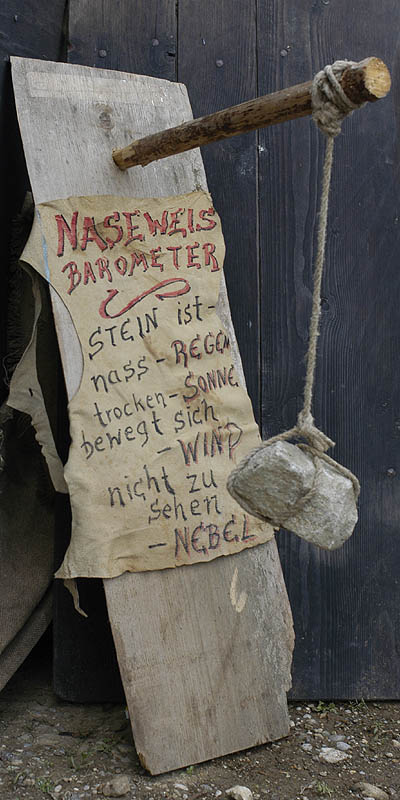 NASEWEIS
BAROMETER
STEIN ist-
nass - REGEN
trocken - SONNE
bewegt sich
- WIND
nicht zu
sehen
- NEBEL